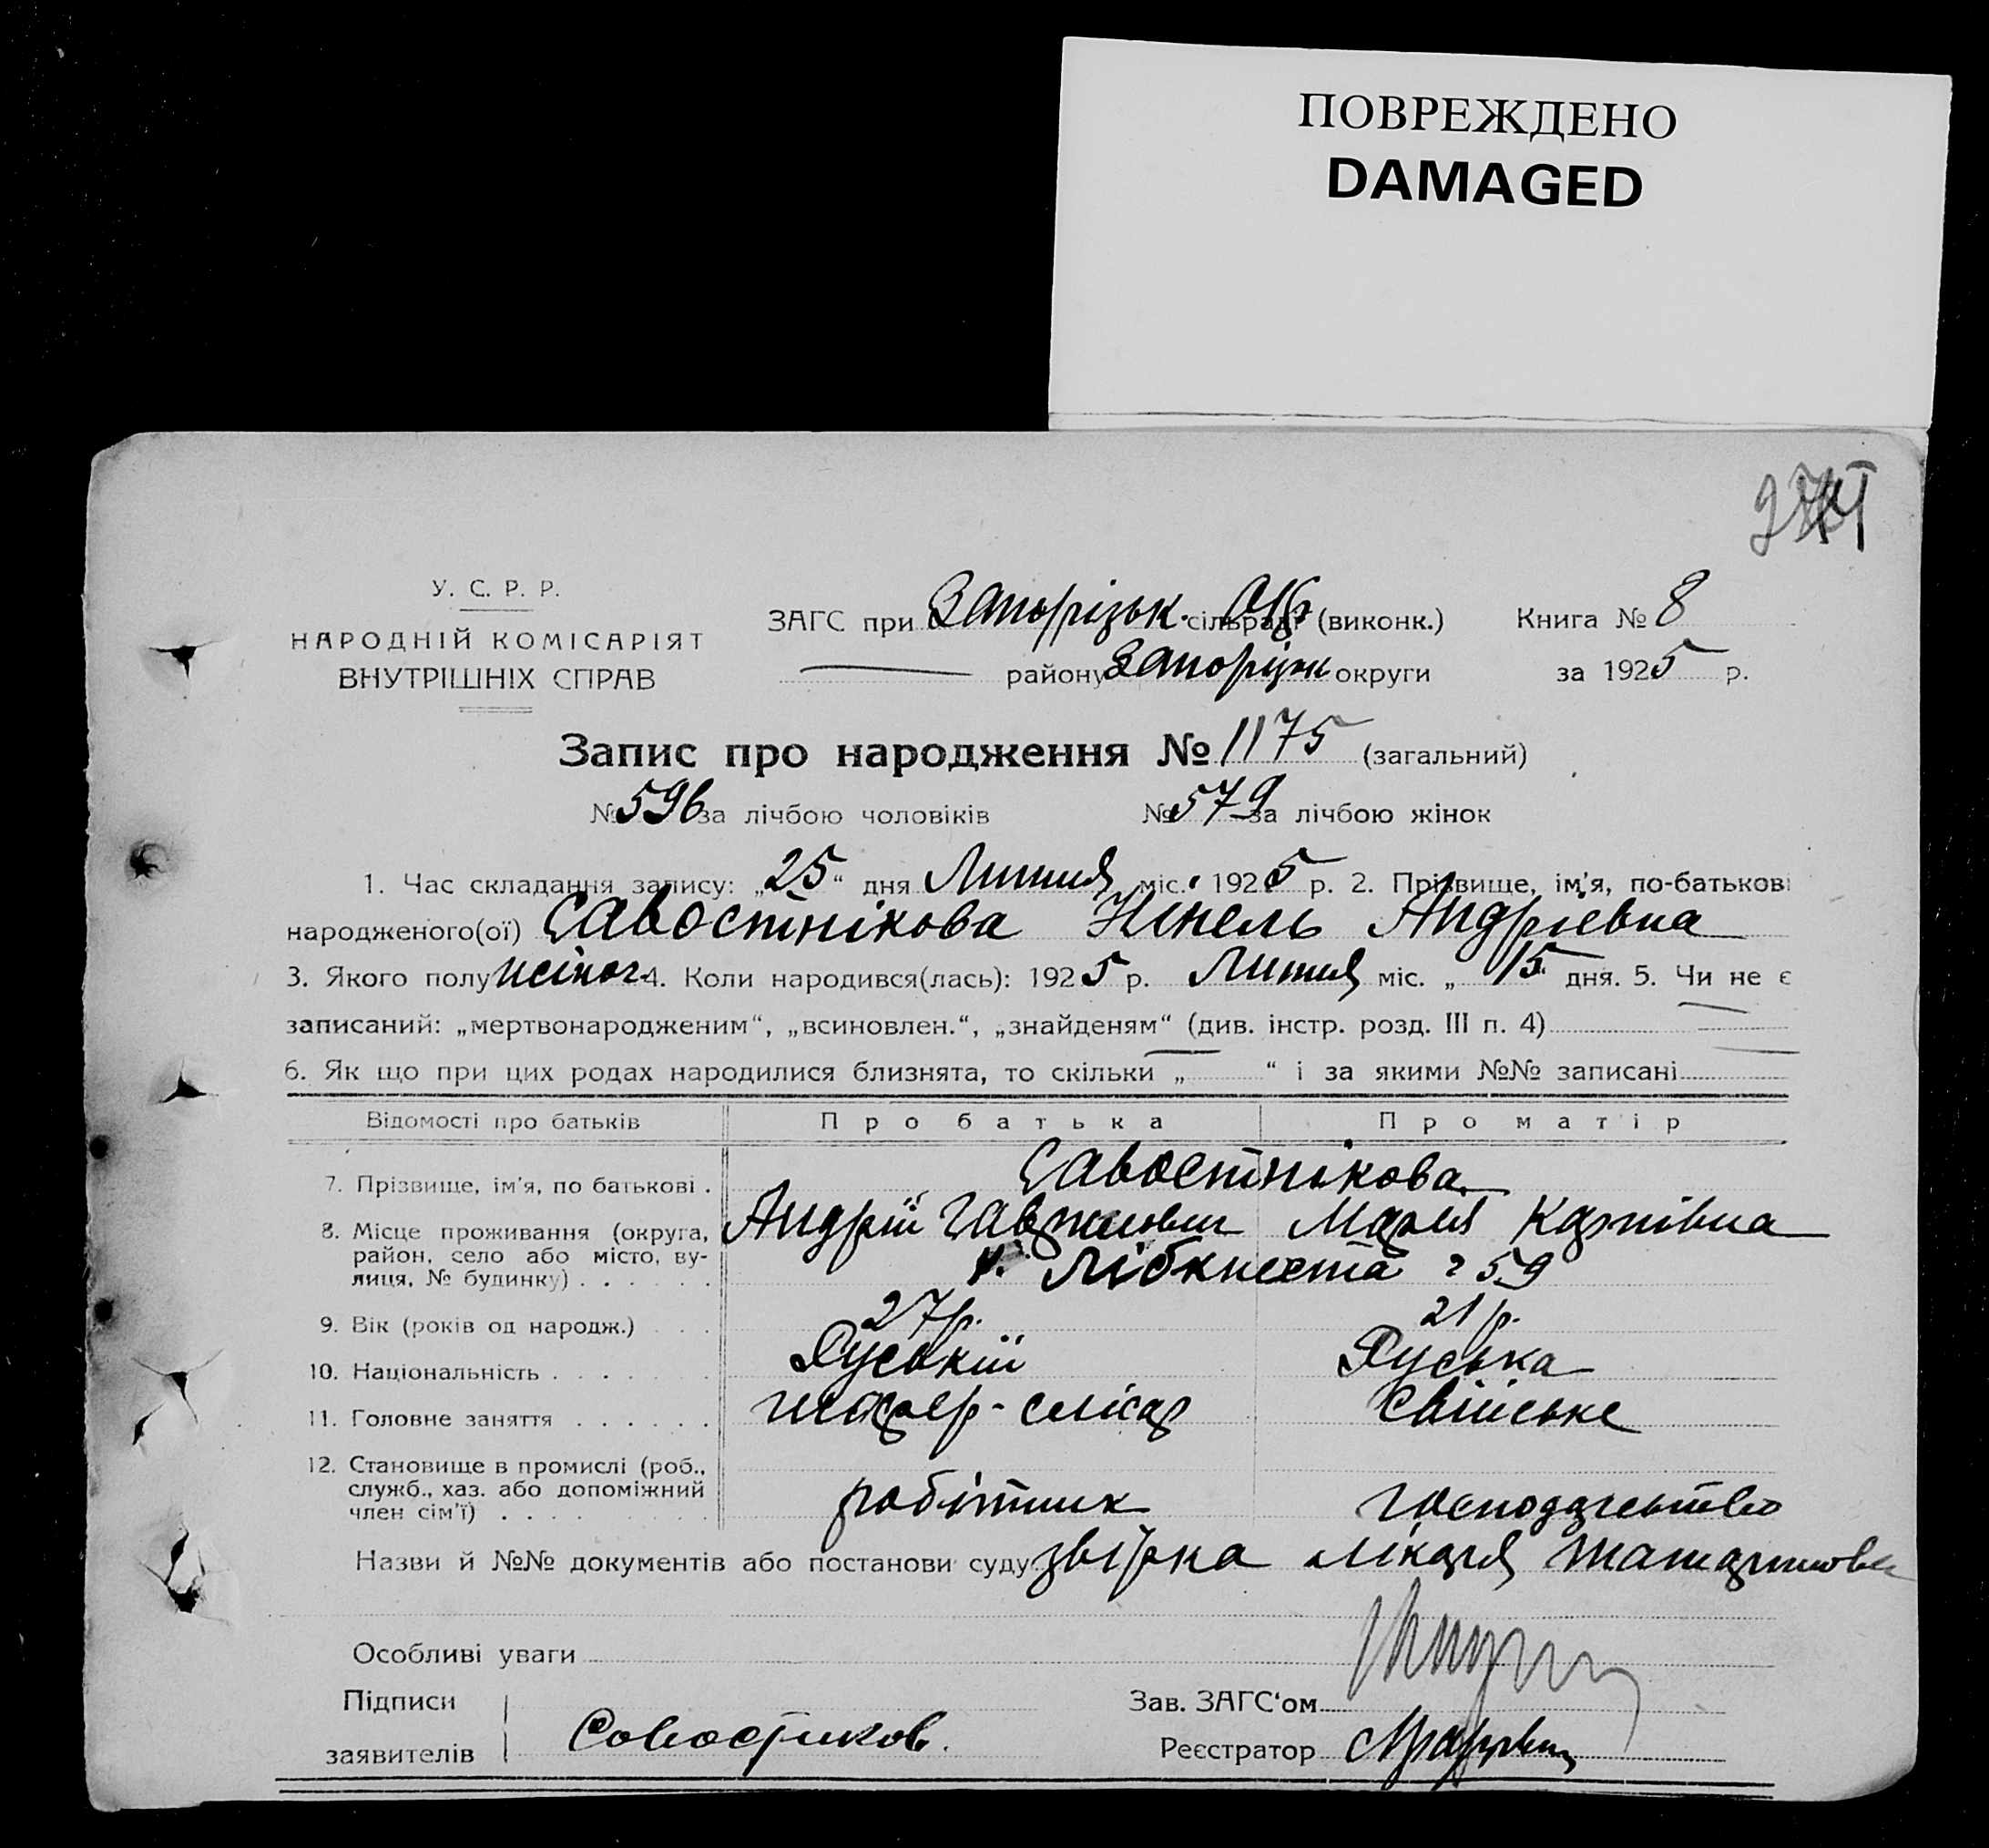 ПОВРЕЖДЕНО
DAMAGED
У. С. Р. Р.
НАРОДНІЙ КОМІСАРІЯТ
ВНУТРІШНІХ СПРАВ
ЗАГС при Запорізьк. сільраді (виконк.) Книга № 8
району Запоріжж округи за 1925 р.
Запис про народження № 1175 (загальний)
№ 596 за лічбою чоловіків № 579 за лічбою жінок
1. Час складання запису: „25“ дня Липня міс. 1925 р. 2. Прізвище, ім'я, по-батькові
народженого(ої) Савостнікова Нінель Андріевна
3. Якого полу жіноч. 4. Коли народився(лась): 1925 р. Липня міс. „ 15 дня. 5. Чи не є
записаний: „мертвонародженим“, „всиновлен.“, „знайденям“ (див. інстр. розд. III п. 4)
6. Як що при цих родах народилися близнята, то скільки „ “ і за якими №№ записані
Відомості про батьків Про батька Про матір
7. Прізвище, ім'я, по батькові . Савостнікова
Андрій Гаврилович Марія Карпівна
8. Місце проживання (округа, район, село або місто, вулиця, № будинку) . . . . . . Лібкнехта 59
9. Вік (років од народж.) . . . 27 р. 21 р.
10. Національність . . . . . . . Руський Руська
11. Головне заняття . . . . . . шофер-слісар Свійське
12. Становище в промислі (роб., служб., хаз. або допоміжний член сім'ї) . . . . . . . . . робітник господарство
Назви й №№ документів або постанови суду звірка лікаря
Особливі уваги
Підписи Зав. ЗАГС'ом
заявителів Савостиков. Реєстратор